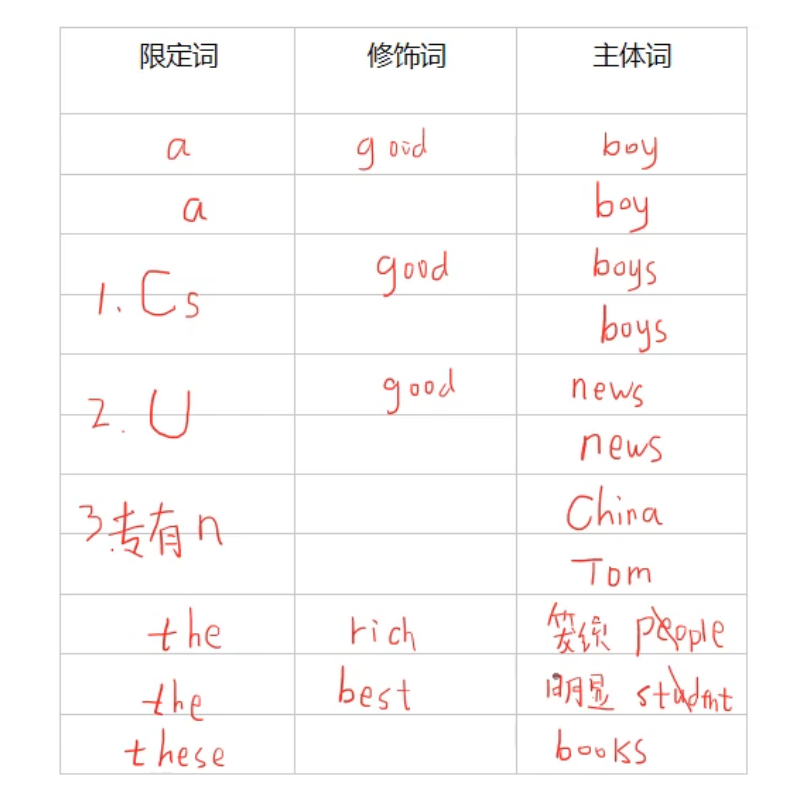 限定词 修饰词 主体词
a good boy
a boy
1. Cs good boys
boys
2. U good news
news
3.专有n China
Tom
the rich 笼统 people
the best 明显 student
these books